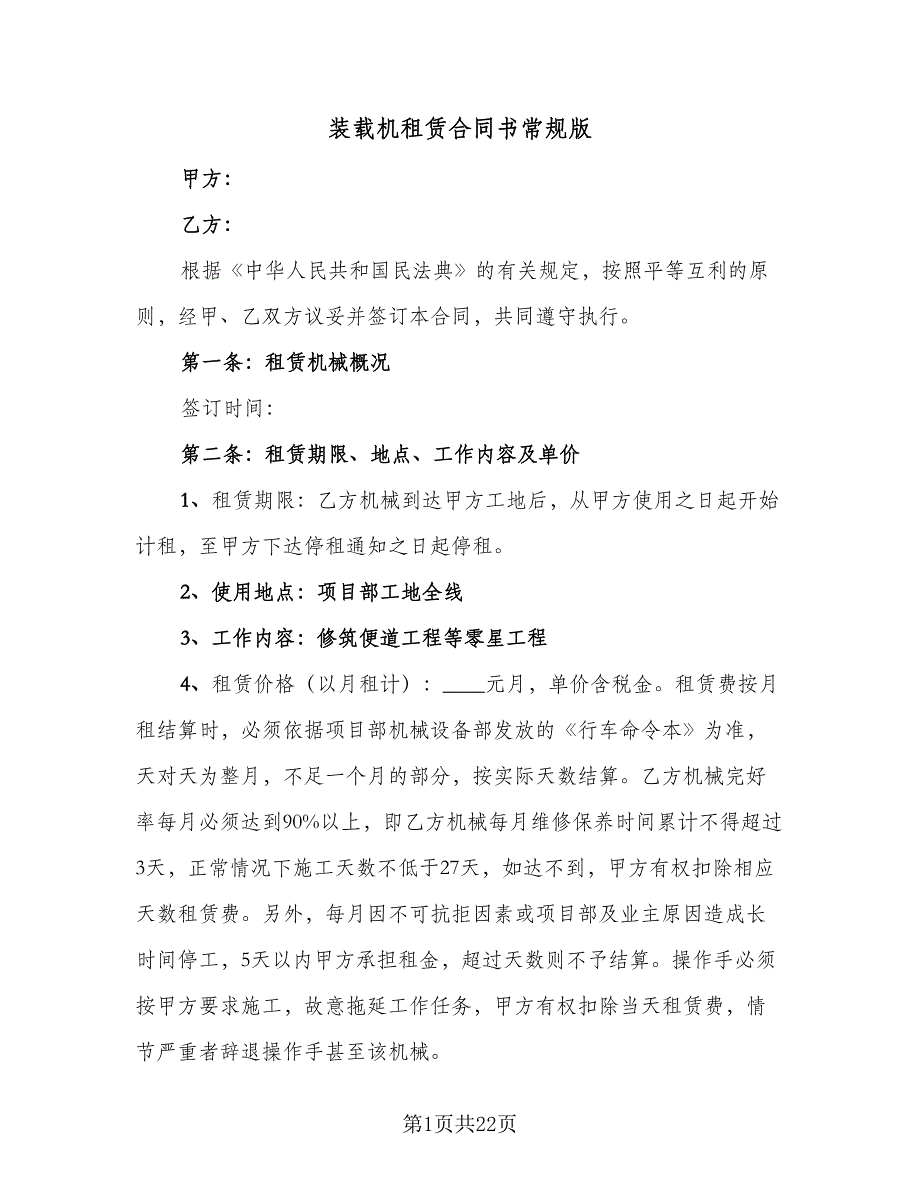 装载机租赁合同书常规版
甲方：
乙方：
根据《中华人民共和国民法典》的有关规定，按照平等互利的原
则，经甲、乙双方议妥并签订本合同，共同遵守执行。
第一条：租赁机械概况
签订时间：
第二条：租赁期限、地点、工作内容及单价
1、租赁期限：乙方机械到达甲方工地后，从甲方使用之日起开始
计租，至甲方下达停租通知之日起停租。
2、使用地点：项目部工地全线
3、工作内容：修筑便道工程等零星工程
4、租赁价格（以月租计）：____元月，单价含税金。租赁费按月
租结算时，必须依据项目部机械设备部发放的《行车命令本》为准，
天对天为整月，不足一个月的部分，按实际天数结算。乙方机械完好
率每月必须达到90%以上，即乙方机械每月维修保养时间累计不得超过
3天，正常情况下施工天数不低于27天，如达不到，甲方有权扣除相应
天数租赁费。另外，每月因不可抗拒因素或项目部及业主原因造成长
时间停工，5天以内甲方承担租金，超过天数则不予结算。操作手必须
按甲方要求施工，故意拖延工作任务，甲方有权扣除当天租赁费，情
节严重者辞退操作手甚至该机械。
第1页共22页